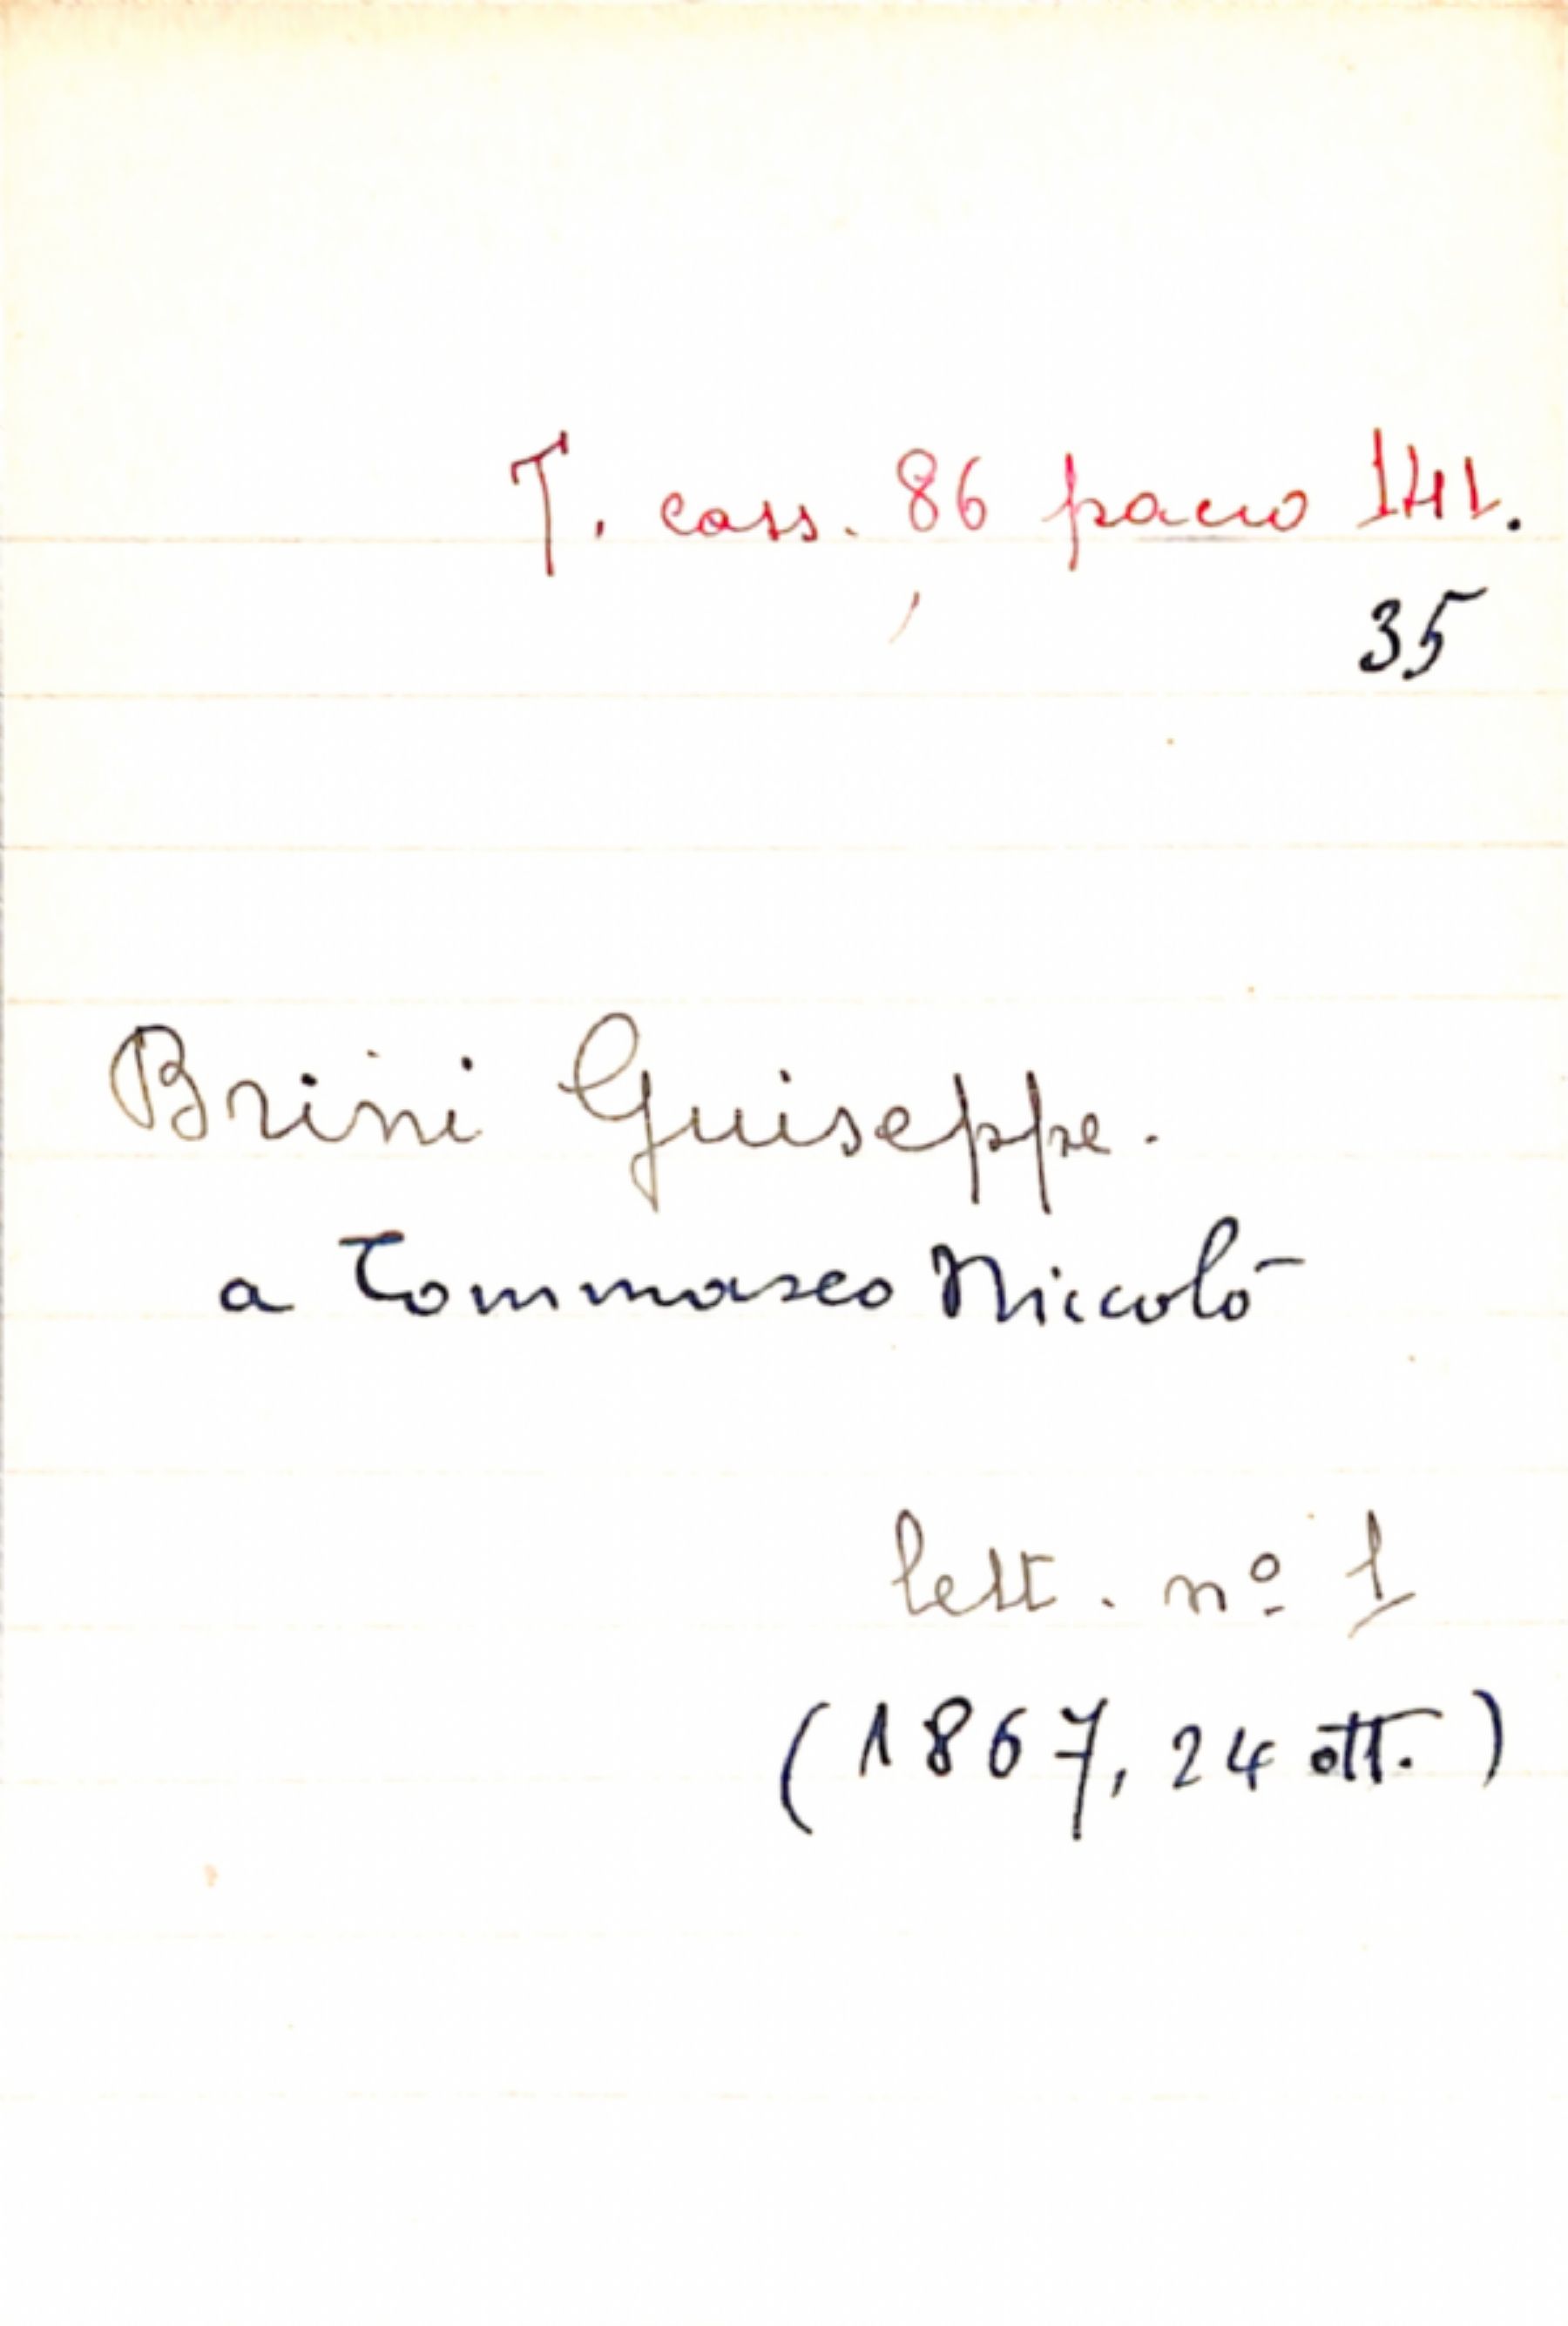 T. cass. 86 pacco 141.
35
Brini Giuseppe.
a Tommaseo Niccolò
lett. nº 1
(1867, 24 ott.)